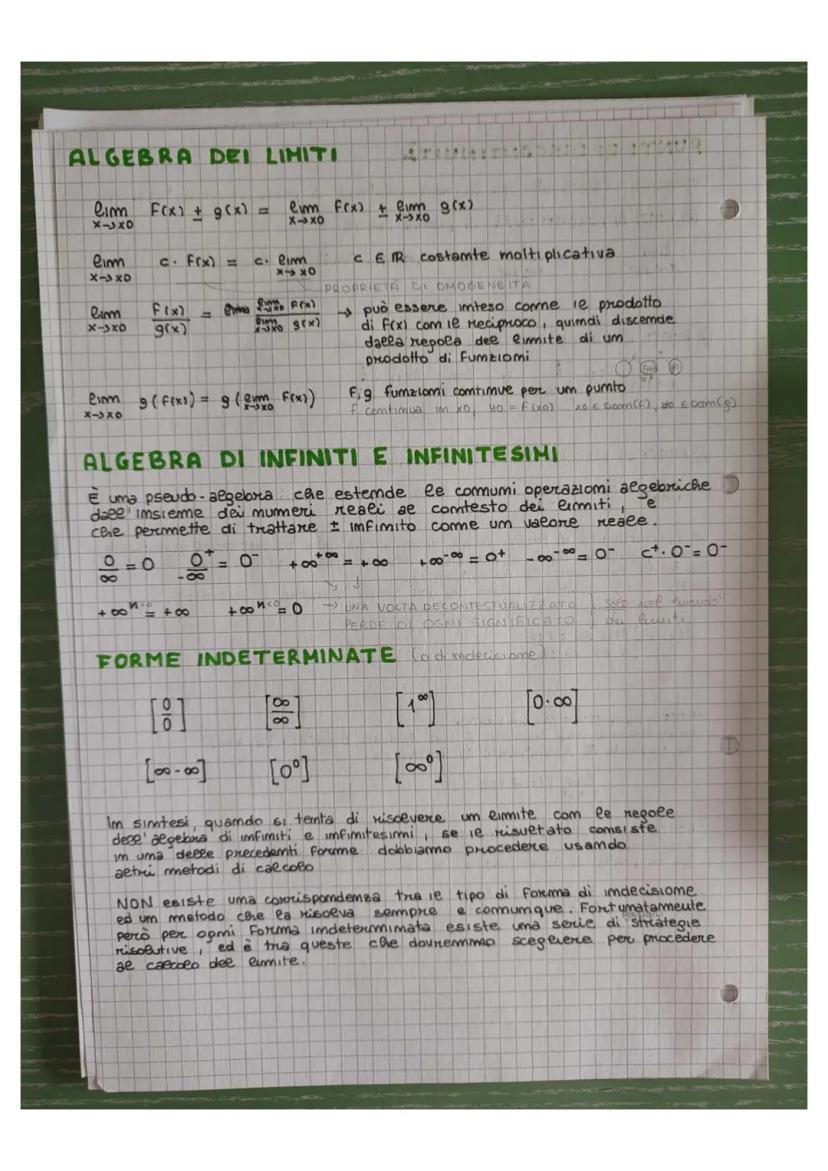 ALGEBRA DEI LIMITI
lim x→x0 F(x) ± g(x) = lim x→x0 f(x) ± lim x→x0 g(x)
lim x→x0 c· F(x) = c· lim x→x0 c ∈ IR costante moltiplicativa
PROPRIETÀ DI OMOGENEITÀ
lim x→x0 F(x)/g(x) = lim x→x0 F(x) / lim x→x0 g(x) → può essere inteso come il prodotto
di F(x) con il reciproco, quindi discende
dalla regola del limite di un
prodotto di funzioni
lim x→x0 g(F(x)) = g(lim x→x0 F(x)) F,g funzioni continue per un punto
F continua in x0, y0 = F(x0) x0 ∈ Dom(F), y0 ∈ Dom(g)
ALGEBRA DI INFINITI E INFINITESIMI
È una pseudo-algebra che estende le comuni operazioni algebriche
dall'insieme dei numeri reali al contesto dei limiti, e
che permette di trattare ± infinito come un valore reale.
0/∞ = 0 0⁺/-∞ = 0⁻ +∞^+∞ = +∞ +∞^-∞ = 0⁺ -∞^-∞ = 0⁻ c⁺· 0⁻ = 0⁻
+∞^n>0 = +∞ +∞^n<0 = 0 → UNA VOLTA DECONTESTUALIZZATO solo nel "mondo"
PERDE DI OGNI SIGNIFICATO dei limiti
FORME INDETERMINATE (o di indecisione)
[0/0] [∞/∞] [1^∞] [0·∞]
[∞-∞] [0⁰] [∞⁰]
In sintesi, quando si tenta di risolvere un limite con le regole
dell'algebra di infiniti e infinitesimi, se il risultato consiste
in una delle precedenti forme dobbiamo procedere usando
altri metodi di calcolo
NON esiste una corrispondenza tra il tipo di forma di indecisione
ed un metodo che la risolva sempre e comunque. Fortunatamente
però per ogni forma indeterminata esiste una serie di strategie
risolutive, ed è tra queste che dovremmo scegliere per procedere
al calcolo del limite.